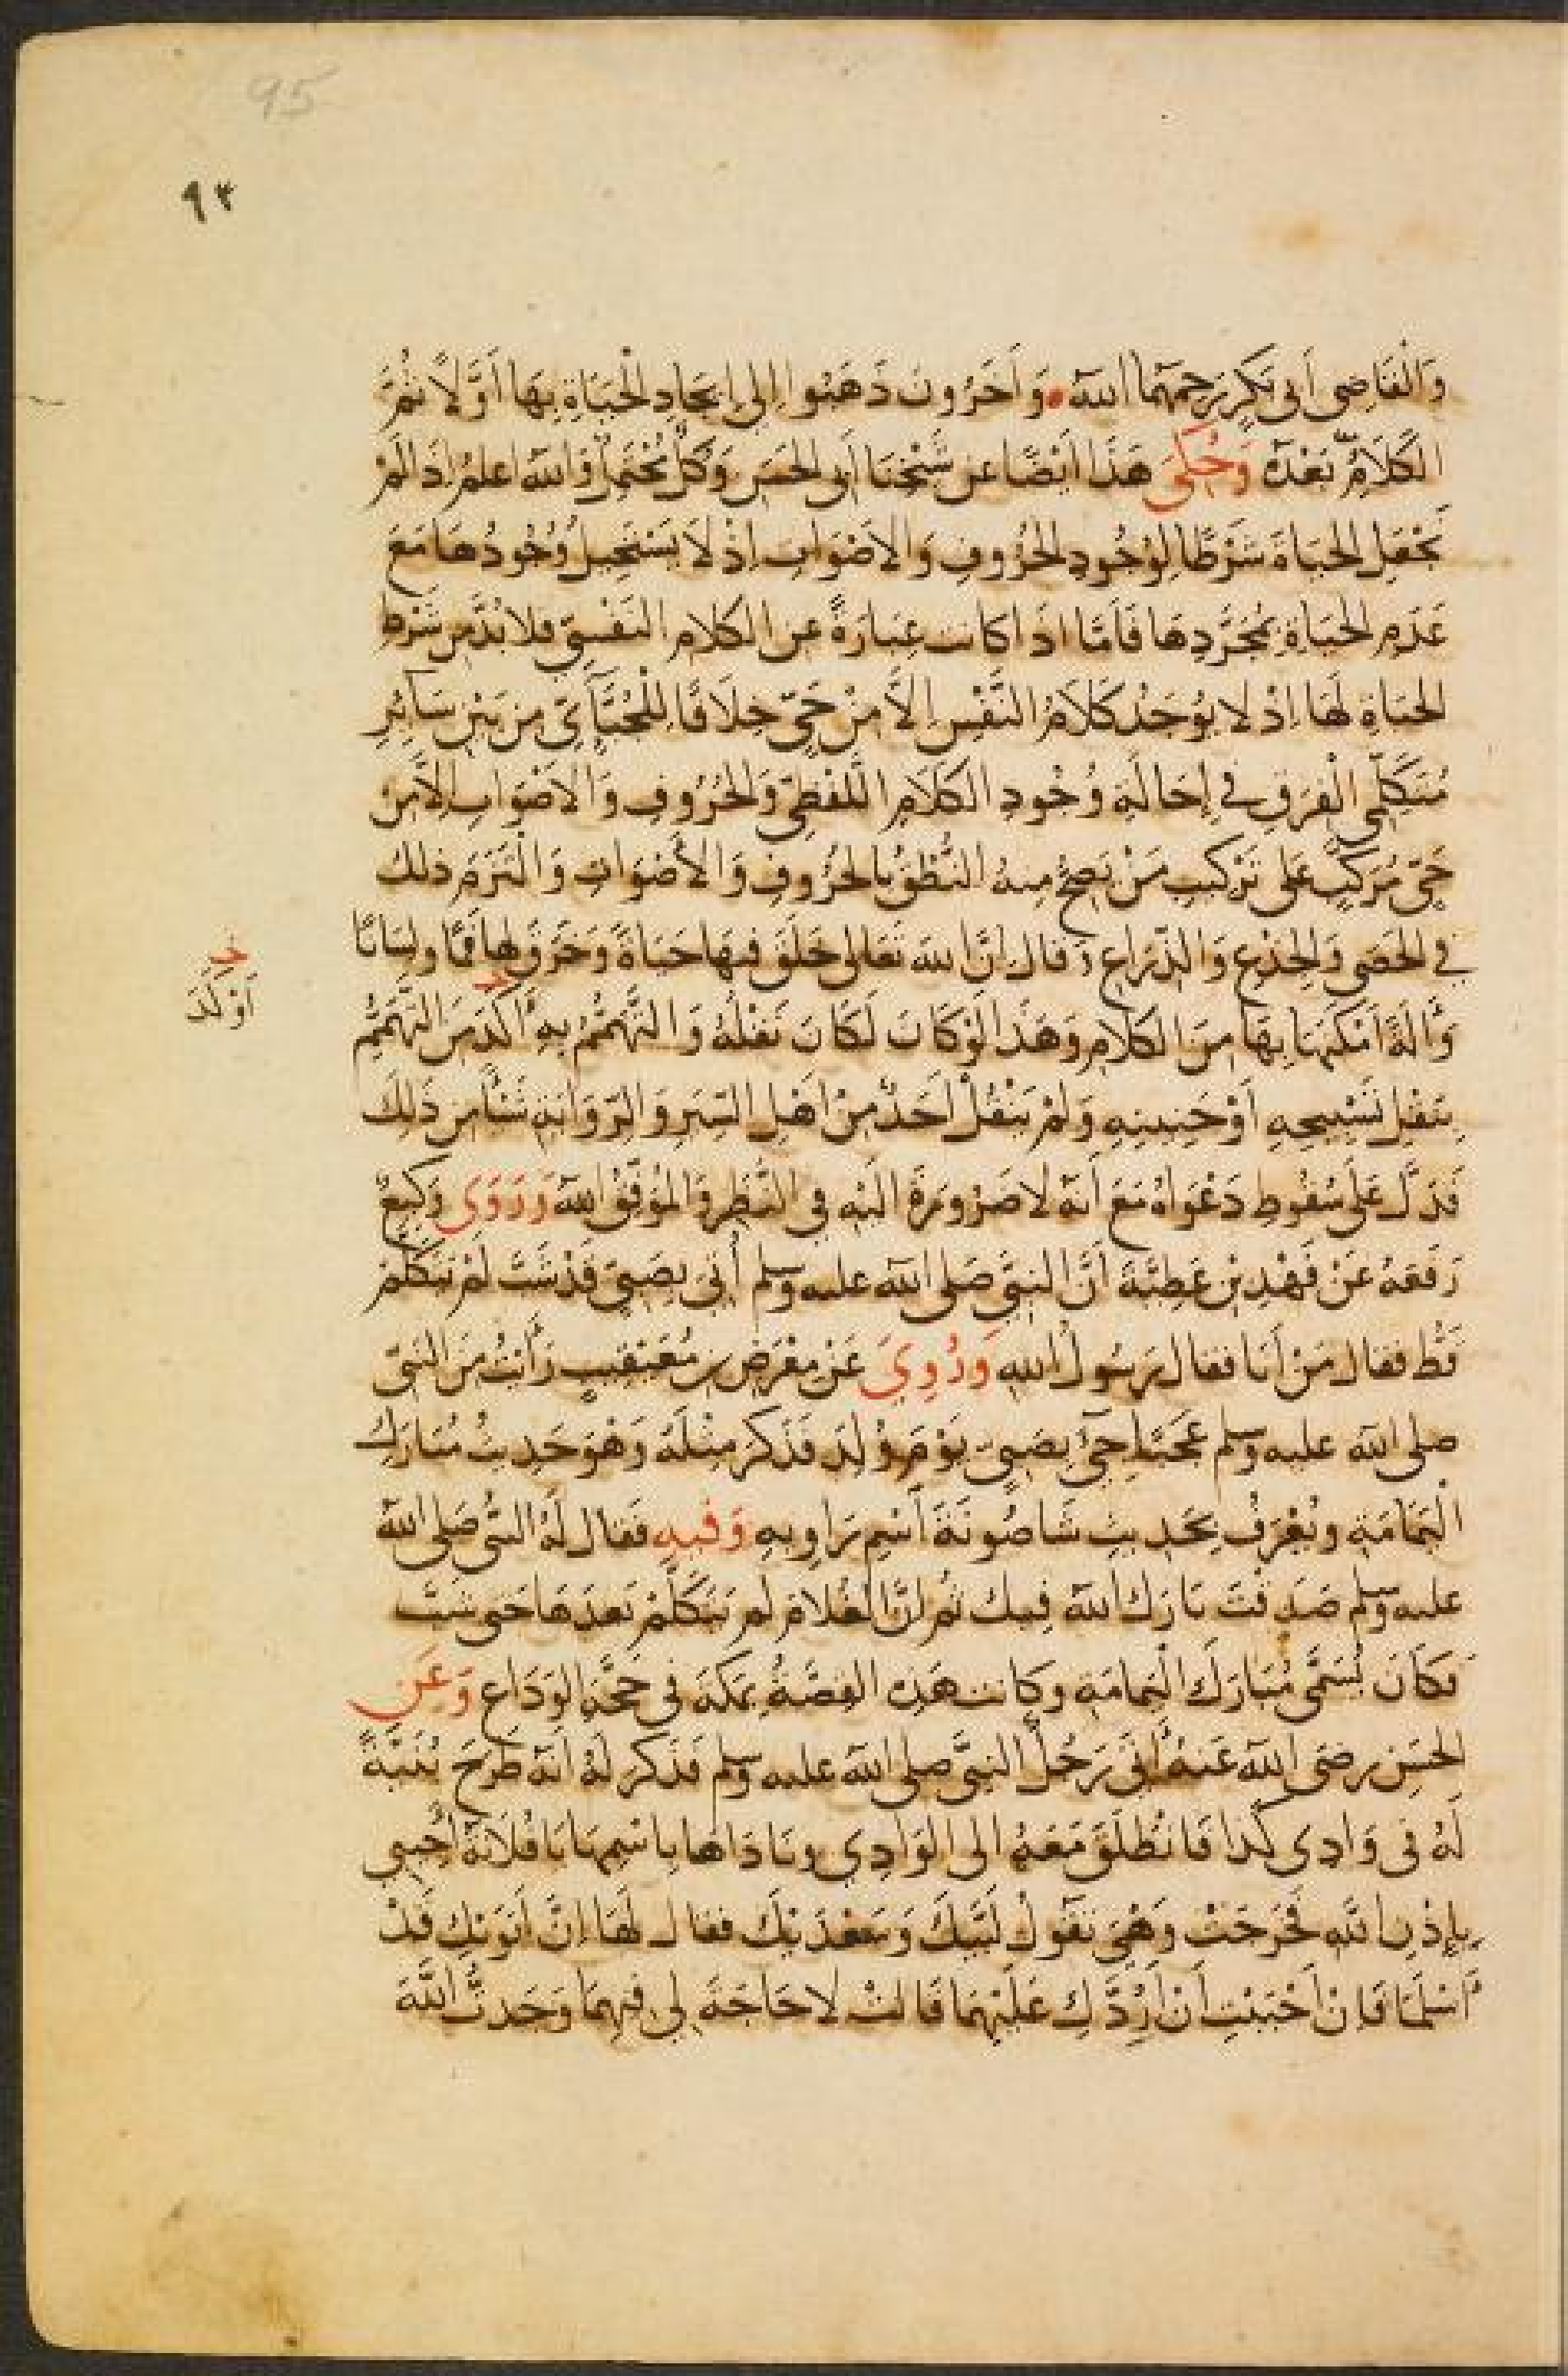 95
٩٣
وَالْقَاضِى أَبى بَكرٍ رَحِمَهُمَا اللّٰهُ وَآخَرُونَ ذَهَبُوا إِلى إِيجَادِ الْحَيَاةِ بِهَا أَوَّلاً ثُمَّ
الكَلَامُ بَعْدَهُ وَحُكِىَ هَذَا أَيْضًا عن شَيْخِنَا أَبى الحَسَن وَكُلٌّ مُحْتَمِلٌ وَاللّٰه اعلمُ إذَا لَمْ
نَجْعَلِ الحَيَاةَ شَرْطًا لِوُجُودِ الحُرُوفِ وَالاَصْوَاتِ إذْ لاَ يَسْتَحِيلُ وُجُودُهَا مَعَ
عَدَمِ الحَيَاةِ بِمُجَرَّدِهَا فَأَمَّا اذَا كانت عِبَارَةً عن الكلامِ النَفْسِىّ فلا بُدَّ مِن شَرْطِ
الحَيَاةِ لَهَا اِذْ لا يُوجَدُ كَلَامُ النَّفْسِ إلاَّ مِنْ حَىٍّ خِلَافًا لِلْجُبَّآَئِىِّ مِن بَيْنِ سَآئِرِ
مُتَكَلِّمِى الْفِرَقِ في إِحَالَةِ وُجُودِ الكَلَامِ اللَّفْظِىِّ وَالحُرُوفِ وَالاَصْوَاتِ إلاَّ مِنْ
حَىٍّ مُرَكَّبٍ عَلى تَرْكيبِ مَنْ يَصِحُّ مِنهُ النُّطْقُ بِالحُرُوفِ وَالأَصْوَاتِ وَالْتَزَمَ ذلك
في الحَصَى وَالجِذْعِ وَالذِّرَاعِ وَقال انَّ اللهَ تَعَالى خَلَقَ فيهَا حَيَاةً وَخَرَقَ لها فَمًا ولِسَانًا
وَآلَةً أَمْكَنَهَا بِهَا مِنَ الكلامِ وَهَذَا لَوْ كَانَ لَكَانَ نَقْلُهُ وَالتَّهَمُّمُ بِهِ آكَدَ مِنَ التَّهَمُّمِ
بِنَقْلِ تَسْبِيحِهِ أَوْ حَنِينِهِ وَلَمْ يَنْقُلْ أَحَدٌ مِنْ اَهْلِ السِّيَرِ وَالرِّوَايَةِ شَيْئًا مِن ذَلِكَ
فَدَلَّ عَلَى سُقُوطِ دَعْوَاهُ مَعَ انَّهُ لا ضَرُورَةَ الَيْهِ فى النَّظَرِ وَالمُوَفِّقُ اللّٰهُ وَرَوَى وَكيعٌ
رَفَعَهُ عَنْ فَهْدِ بْنِ عَطِيَّةَ أَنَّ النبِىَّ صَلى اللّٰه عليه وسلم أُتِىَ بِصَبِىٍّ قَدْ شَبَّ لَمْ يَتَكَلَّمْ
قَطُّ فقال مَنْ أَنَا فقال رَسُولُ اللهِ وَرُوِيَ عَنْ مِعْرَضِ بنِ مُعَيْقِيبٍ رَأَيْتُ مِنَ النبِىِّ
صلى اللّٰه عليه وسلم عَجَبًا جِىءَ بِصَبِىٍّ يَوْمَ وُلِدَ فَذَكَرَ مِثْلَهُ وَهُوَ حَدِيثُ مُبَارَكِ
الْيَمَامَةِ وَيُعْرَفُ بِحَدِيثِ شَاصُونَةَ اسْمِ رَاوِيهِ وَفيهِ فَقال لَهُ النبىُّ صَلى اللّٰه
عليه وسلم صَدَقْتَ بَارَكَ اللّٰه فِيك ثم إنَّ الغُلامَ لم يَتَكَلَّمْ بَعدَهَا حَتى شَبَّ
فكَانَ يُسَمَّى مُبَارَكَ الْيَمَامَةِ وكانت هَذِهِ القِصَّةُ بِمَكَّةَ فى حَجَّةِ الوَدَاعِ وَعَنِ
الحَسَنِ رضى اللّٰه عَنهُ أَتَى رَجُلٌ النبِىَّ صلى اللّٰه عليه وسلم فَذَكرَ لَهُ أَنَّهُ طَرَحَ بُنَيَّةً
لَهُ فى وَادِى كذا فَانْطَلَقَ مَعَهُ الى الوَادِي ونَادَاهَا بِاسْمِهَا يَا فُلَانَةُ أَجِيبِى
بِإِذْنِ اللّهِ فَخَرَجَتْ وَهِىَ تَقُولُ لَبَّيْكَ وَسَعْدَيْكَ فقال لَهَا إنَّ أَبَوَيْكِ قَدْ
أَسْلَمَا فَاِنْ أَحْبَبْتِ أَنْ أَرُدَّكِ عَلَيْهِمَا قَالتْ لا حَاجَةَ لى فيهِمَا وَجَدتُ اللَّهَ